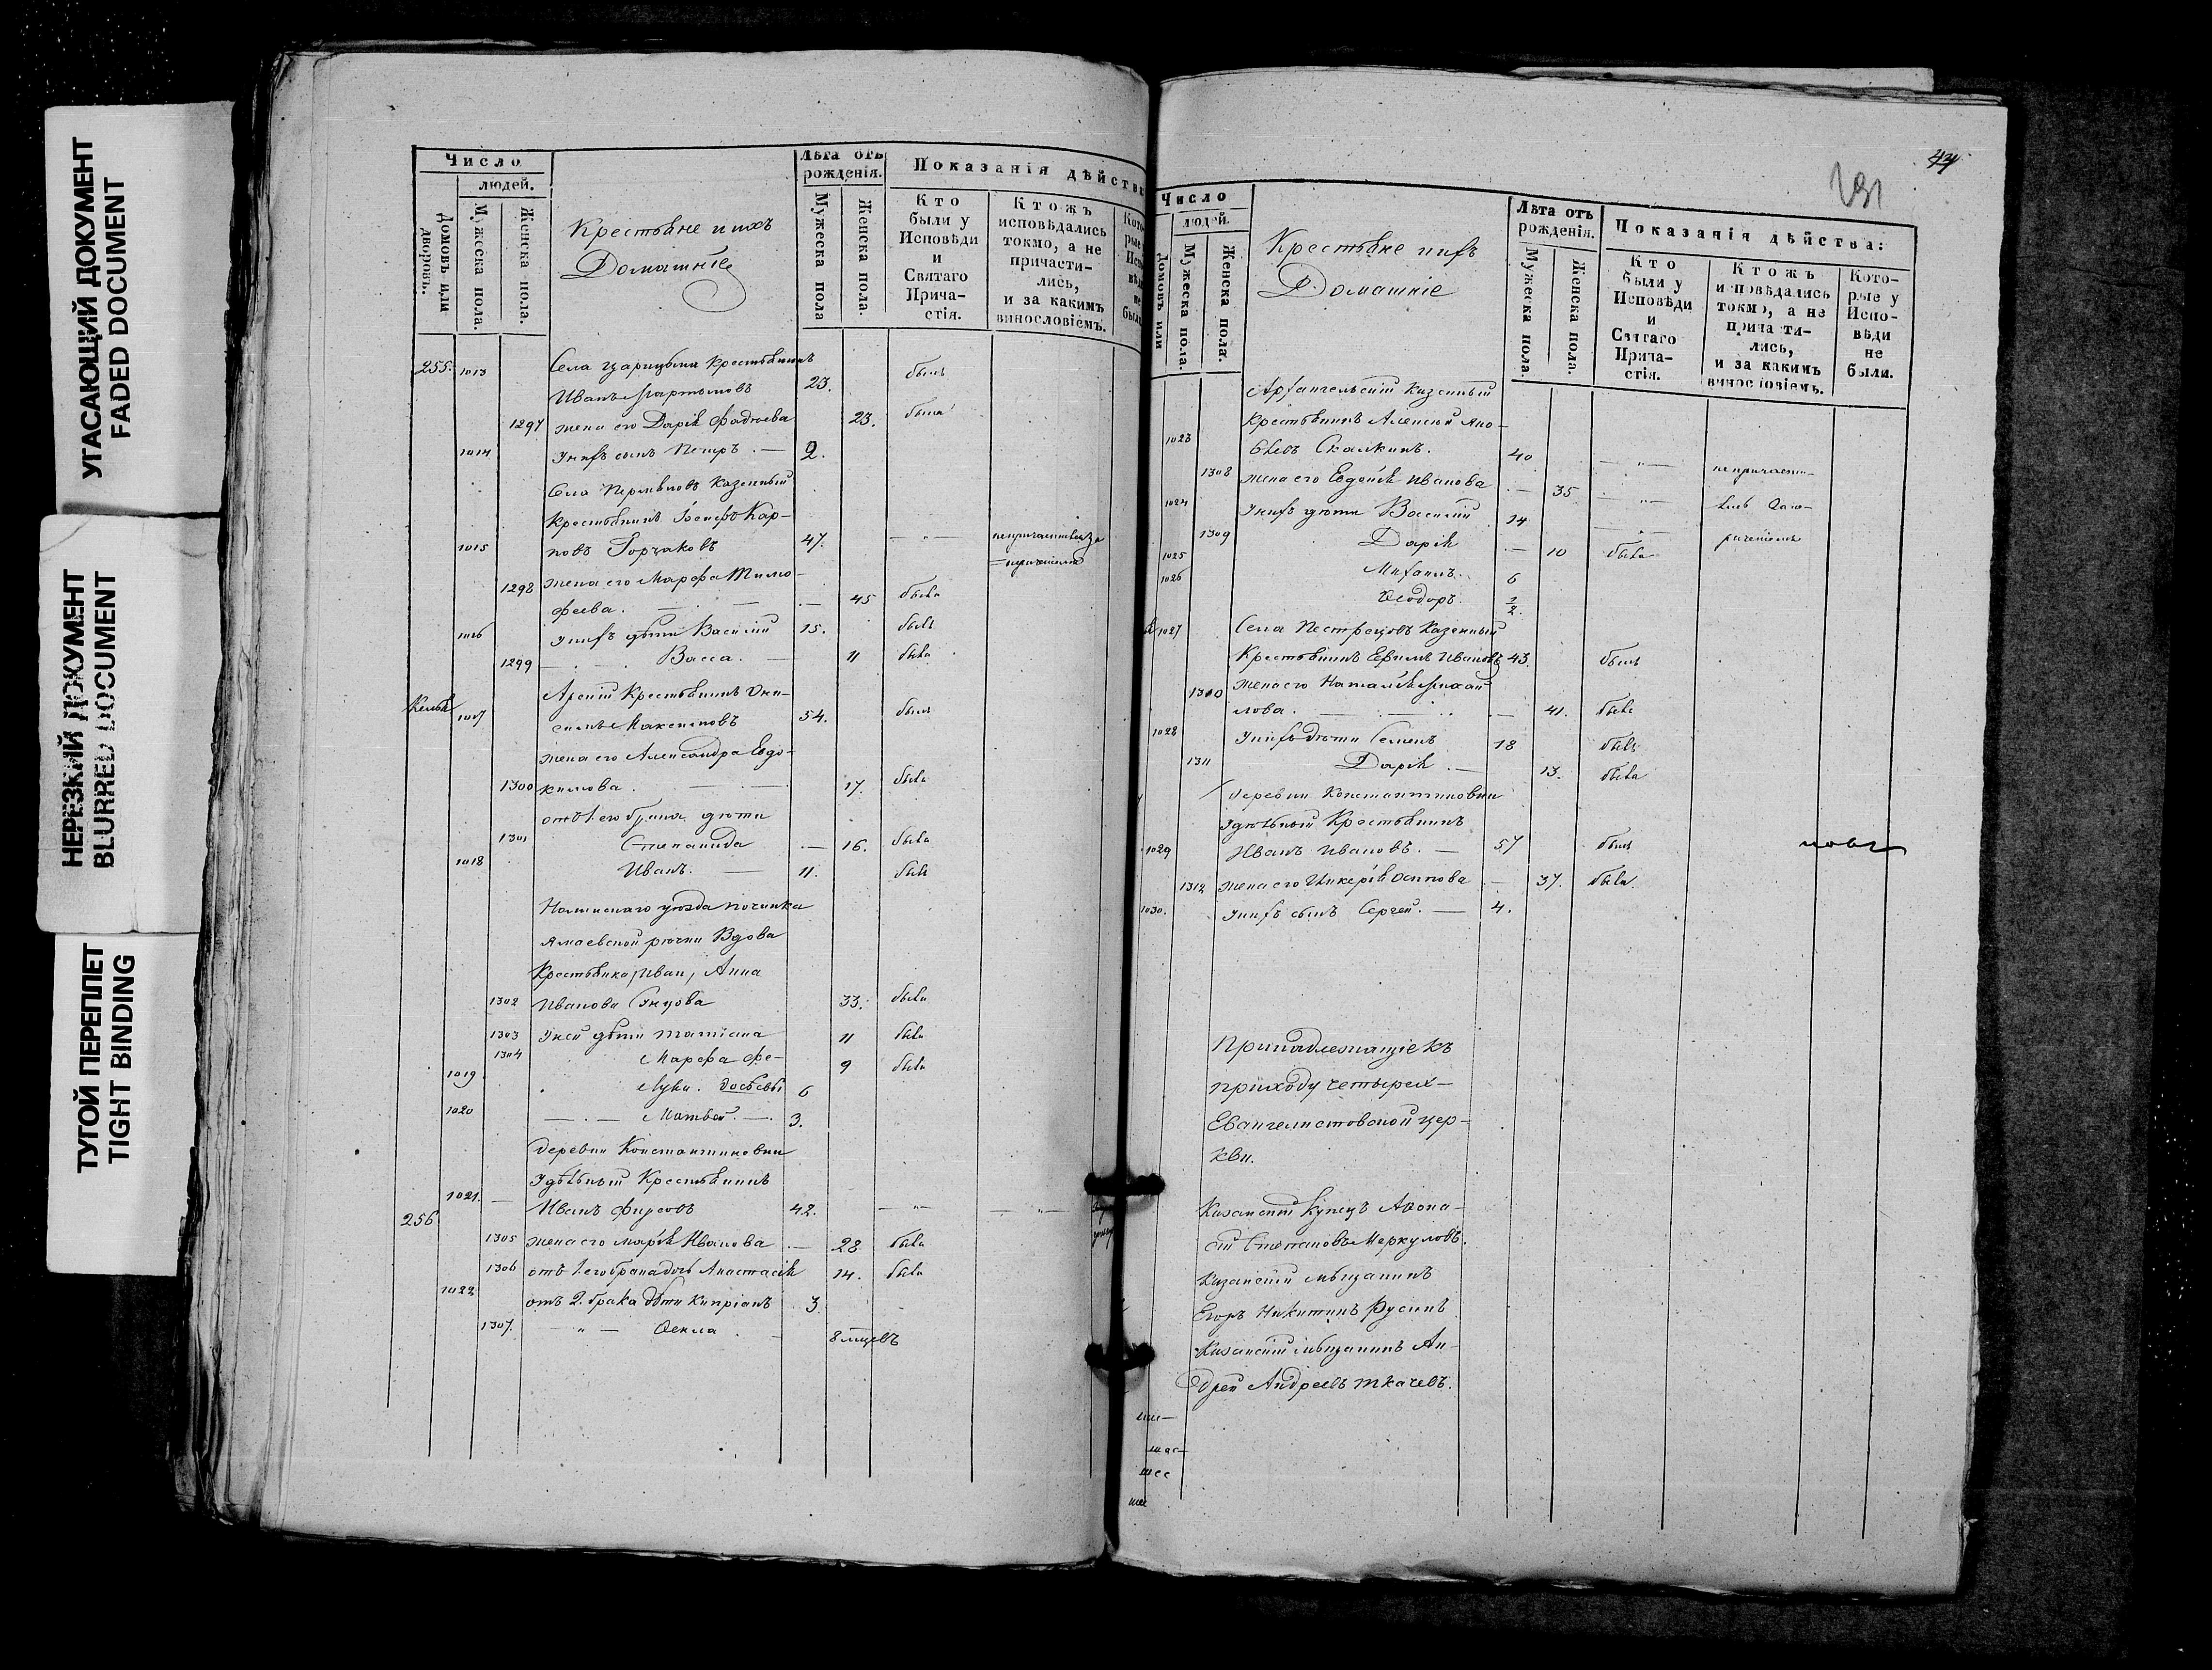 УГАСАЮЩИЙ ДОКУМЕНТ
FADED DOCUMENT
НЕРЕЗКИЙ ДОКУМЕНТ
BLURRED DOCUMENT
ТУГОЙ ПЕРЕПЛЕТ
TIGHT BINDING
Число
людей.
Домовъ или дворовъ.
Мужеска пола.
Женска пола.
Крестьяне и ихъ
Домашніе
Лѣта отъ рожденія.
Мужеска пола
Женска пола.
Показанія дѣйства
Кто были у Исповѣди и Святаго Причастія.
Ктожъ исповѣдались токмо, а не причастились, и за какимъ винословіемъ.
255. 1013 Села Царицына крестьянинъ
Иванъ Мартыновъ 23. былъ
1297 жена его Дарія Фадѣева 23. была
1014 У нихъ сынъ Петръ. — 2.
Села казенный
крестьянинъ Кар-
1015 повъ Горчаковъ 47. — " —
1298 жена его Марфа Тимо-
феева. — 45 была
1016 У нихъ дѣти Василій 15. былъ
1299 Васса. — 11 была
Крестьянинъ Они-
1017 симъ Максимовъ 54. былъ
жена его Александра Евдо-
1300 кимова. 17. была
отъ 1. его брака дѣти
1301 Степанида — 16. была
1018 Иванъ. — 11. былъ
уѣзда починка
Вдова
Крестьянка, Иван, Анна
1302 Иванова 33. была
1303 У ней дѣти Татіана 11 была
1304 Марфа 9 была
1019 Лука. 6
1020 Матвей. — 3.
деревни Константиновки
Удѣльный Крестьянинъ
1021. — Иванъ Фирсовъ 42. — " — — " —
256
1305 жена его Марія Иванова — 28 была
1306 отъ 1. его брака дочь Анастасія 14. была
1022 отъ 2. брака дѣти Кипріанъ 3.
1307. — " — Ѳекла 8 мѣсцевъ
44
Число
людей.
Домовъ или
Мужеска пола.
Женска пола.
Крестьяне и ихъ
Домашніе
Лѣта отъ рожденія.
Мужеска пола.
Женска пола.
Показанія дѣйства:
Кто были у Исповѣди и Святаго Причастія.
Ктожъ исповѣдались токмо, а не причастились, и за какимъ винословіемъ.
Которые у Исповѣди не были.
Архангельскій казенный
крестьянинъ Алексей
1023 Скалкинъ. 40 — " —
1308 жена его Евдокія Иванова — 35 — " —
1024 У нихъ дѣти Василій 14 — " —
1309 Дарія — 10 была
1025 Михаилъ. 6
1026 Ѳеодоръ. 1/2
1027 Села Пестрецовъ казенный
Крестьянинъ Ефимъ Ивановъ 43. былъ
1310 жена его Наталія Михай-
лова. — 41. была
1028 У нихъ дѣти Семенъ 18 былъ
1311 Дарія. — 13. была
деревни Константиновки
Удѣльный Крестьянинъ
1029 Иванъ Ивановъ. — 57 былъ
1312 жена его Гликерія Осипова — 37. была.
1030. У нихъ сынъ Сергей. — 4.
Принадлежащіе къ
приходу четырех-
Евангелистовской цер-
кви.
Казанскій Купецъ Аѳона-
сій Степановъ Меркуловъ.
Казанскій мѣщанинъ
Егоръ Никитинъ Русинъ
Казанскій мѣщанинъ Ан-
дрей Андреевъ Ткачевъ.